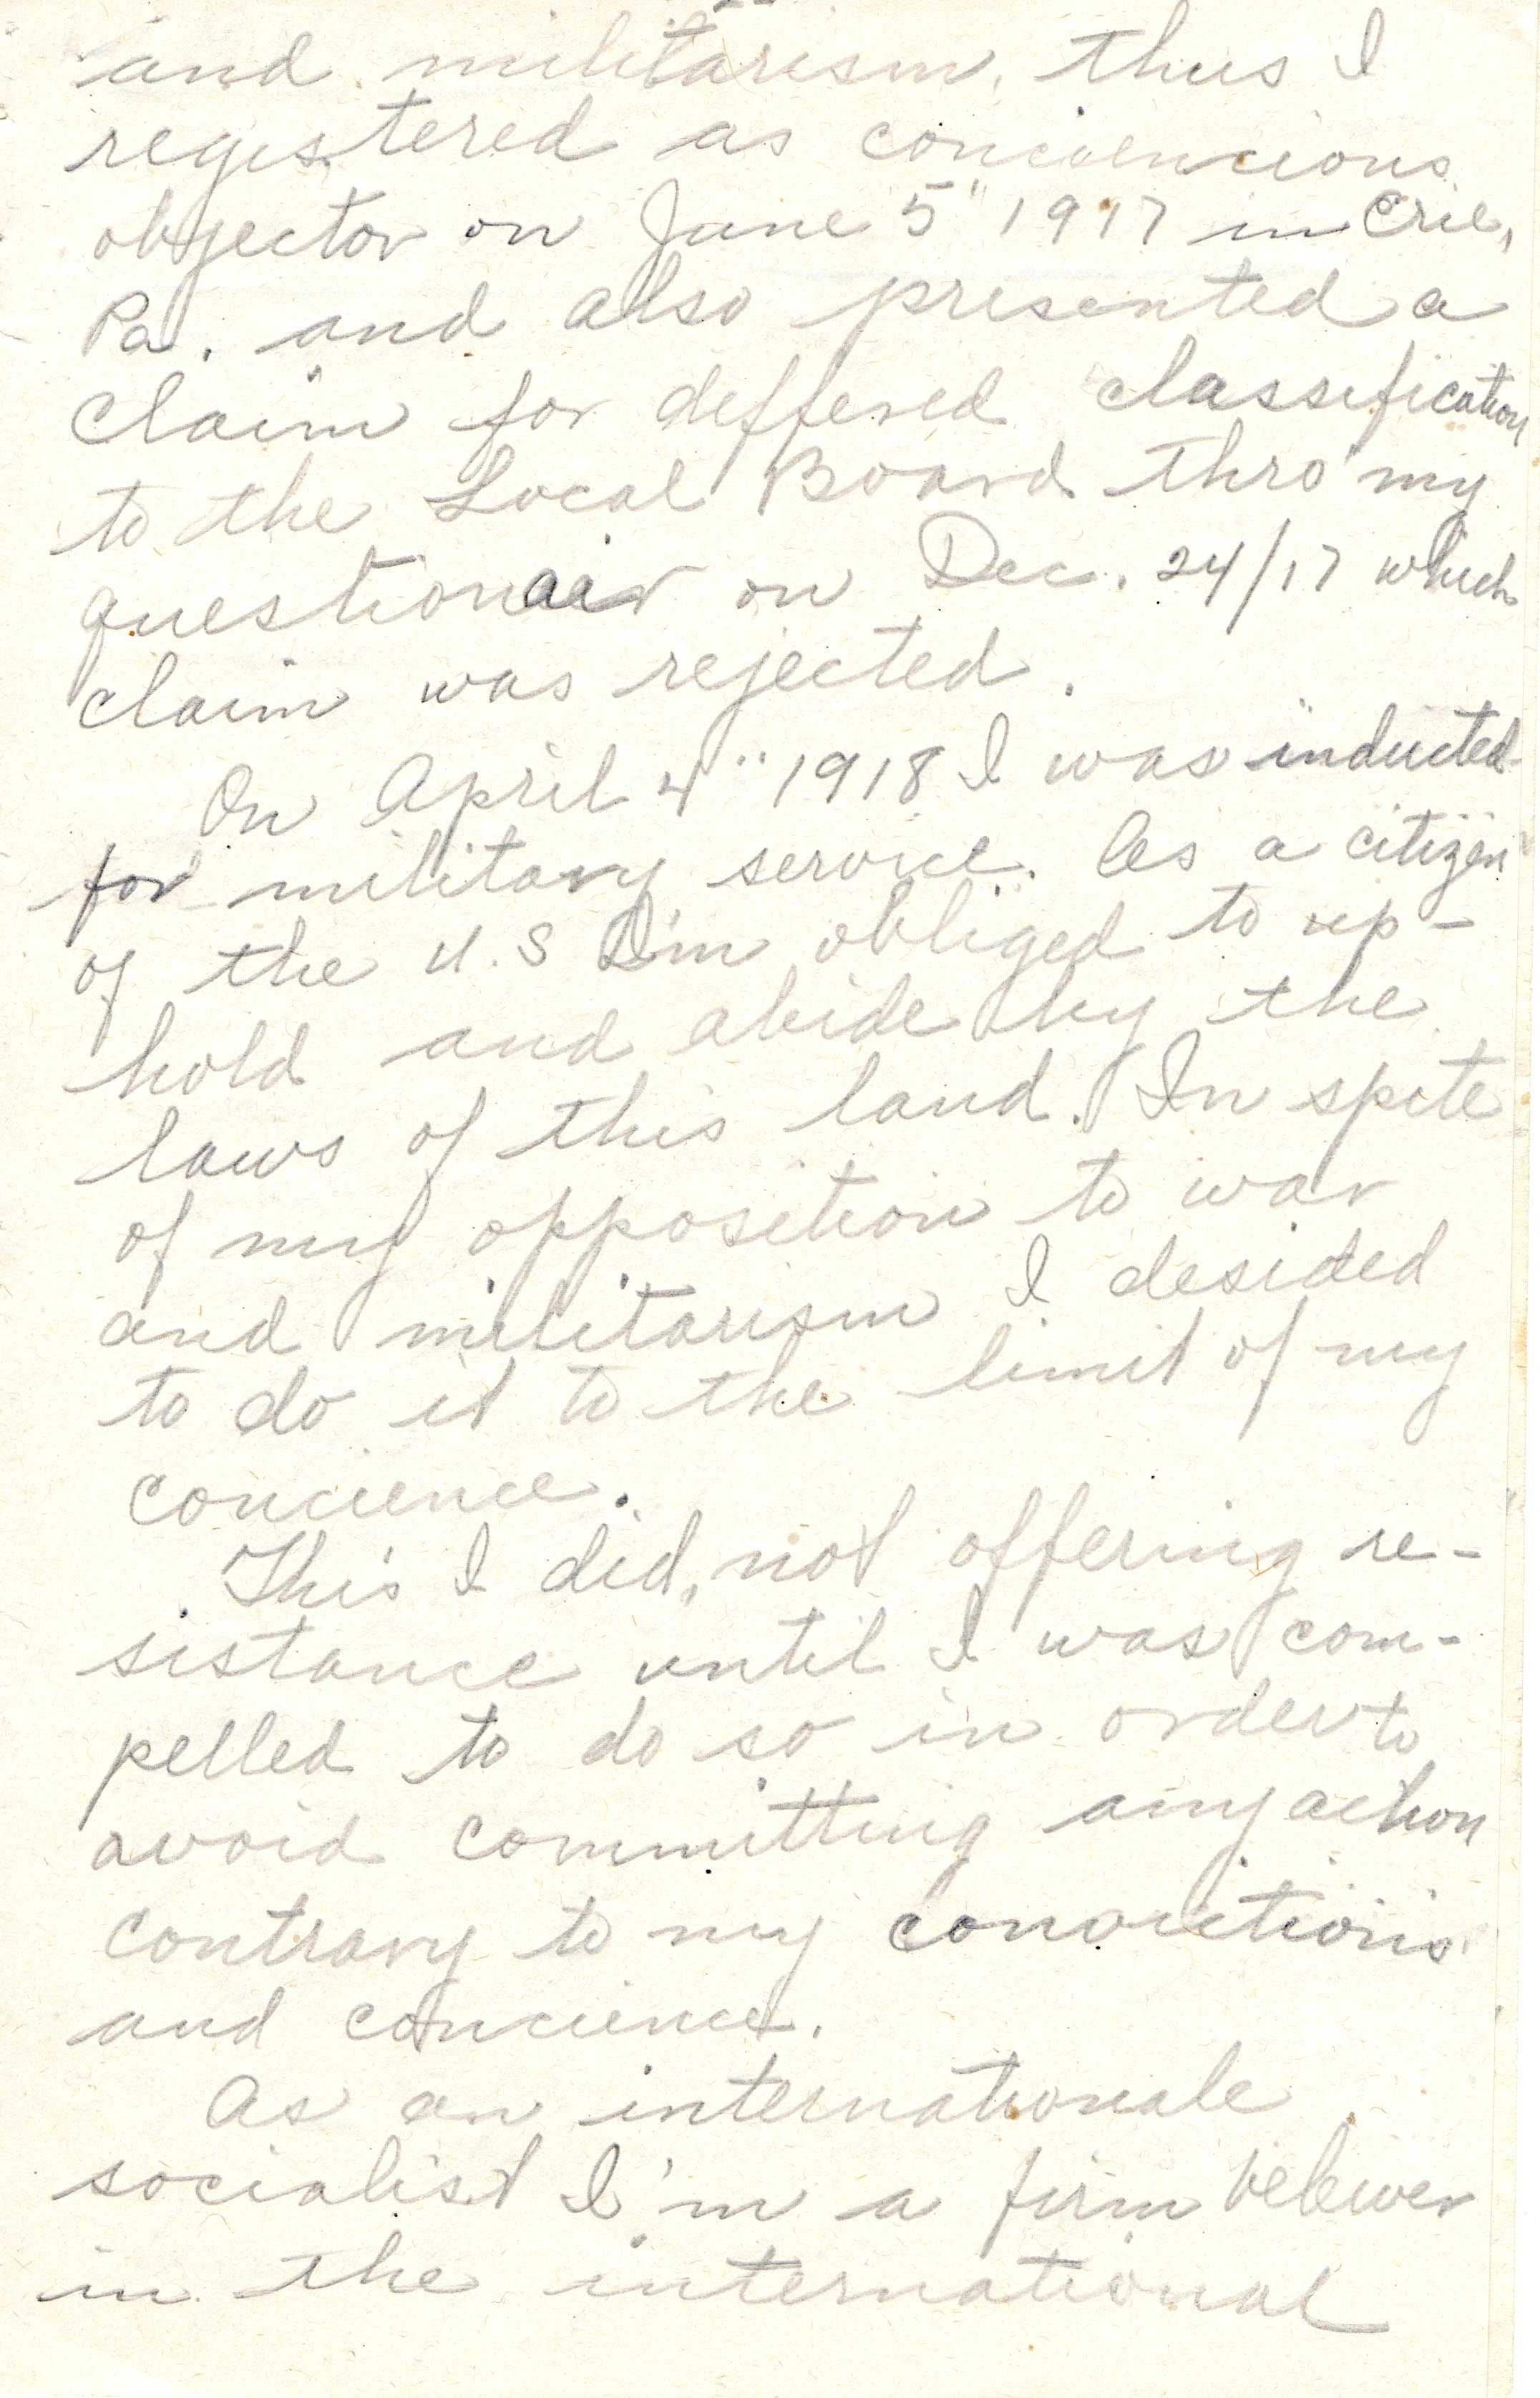 and militarism, thus I
registered as conciencious
objector on June 5" 1917 in Erie,
Pa. and also presented a
claim for deffered classification
to the Local Board thro my
questionair on Dec. 24/17 which
claim was rejected.
On April 4" 1918 I was inducted
for military service. As a citizen
of the U.S I'm obliged to up-
hold and abide by the
laws of this land. In spite
of my opposition to war
and militarism I desided
to do it to the limit of my
concience.
This I did, not offering re-
sistance until I was com-
pelled to do so in order to
avoid committing any action
contrary to my convictions
and concience.
As an internationale
socialist I'm a firm beleiver
in the international